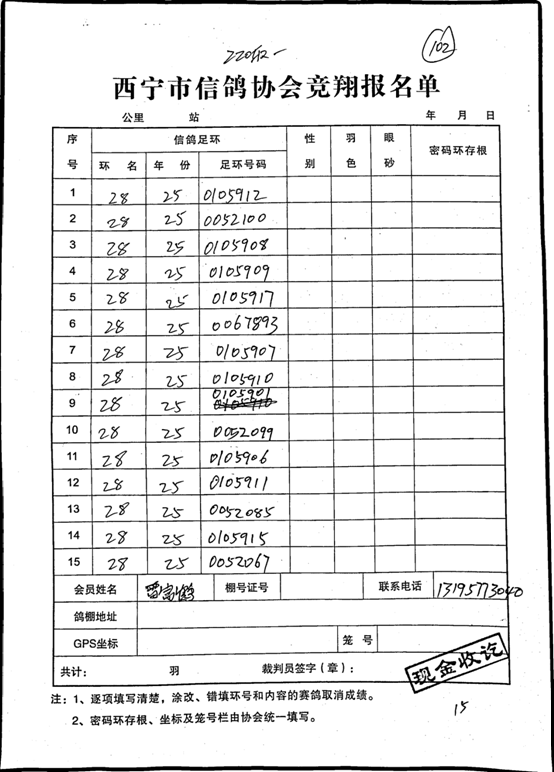 102
西宁市信鸽协会竞翔报名单
公里 站 年 月 日
序号 信鸽足环 性别 羽色 眼砂 密码环存根
环名 年份 足环号码
1 28 25 0105912
2 28 25 0052100
3 28 25 0105908
4 28 25 0105909
5 28 25 0105917
6 28 25 0067893
7 28 25 0105907
8 28 25 0105910
9 28 25 0105901
10 28 25 0052099
11 28 25 0105906
12 28 25 0105911
13 28 25 0052085
14 28 25 0105915
15 28 25 0052067
会员姓名 棚号证号 联系电话 13195773040
鸽棚地址
GPS坐标 笼号
共计: 羽 裁判员签字(章):
现金收讫
注:1、逐项填写清楚,涂改、错填环号和内容的赛鸽取消成绩。
2、密码环存根、坐标及笼号栏由协会统一填写。
15